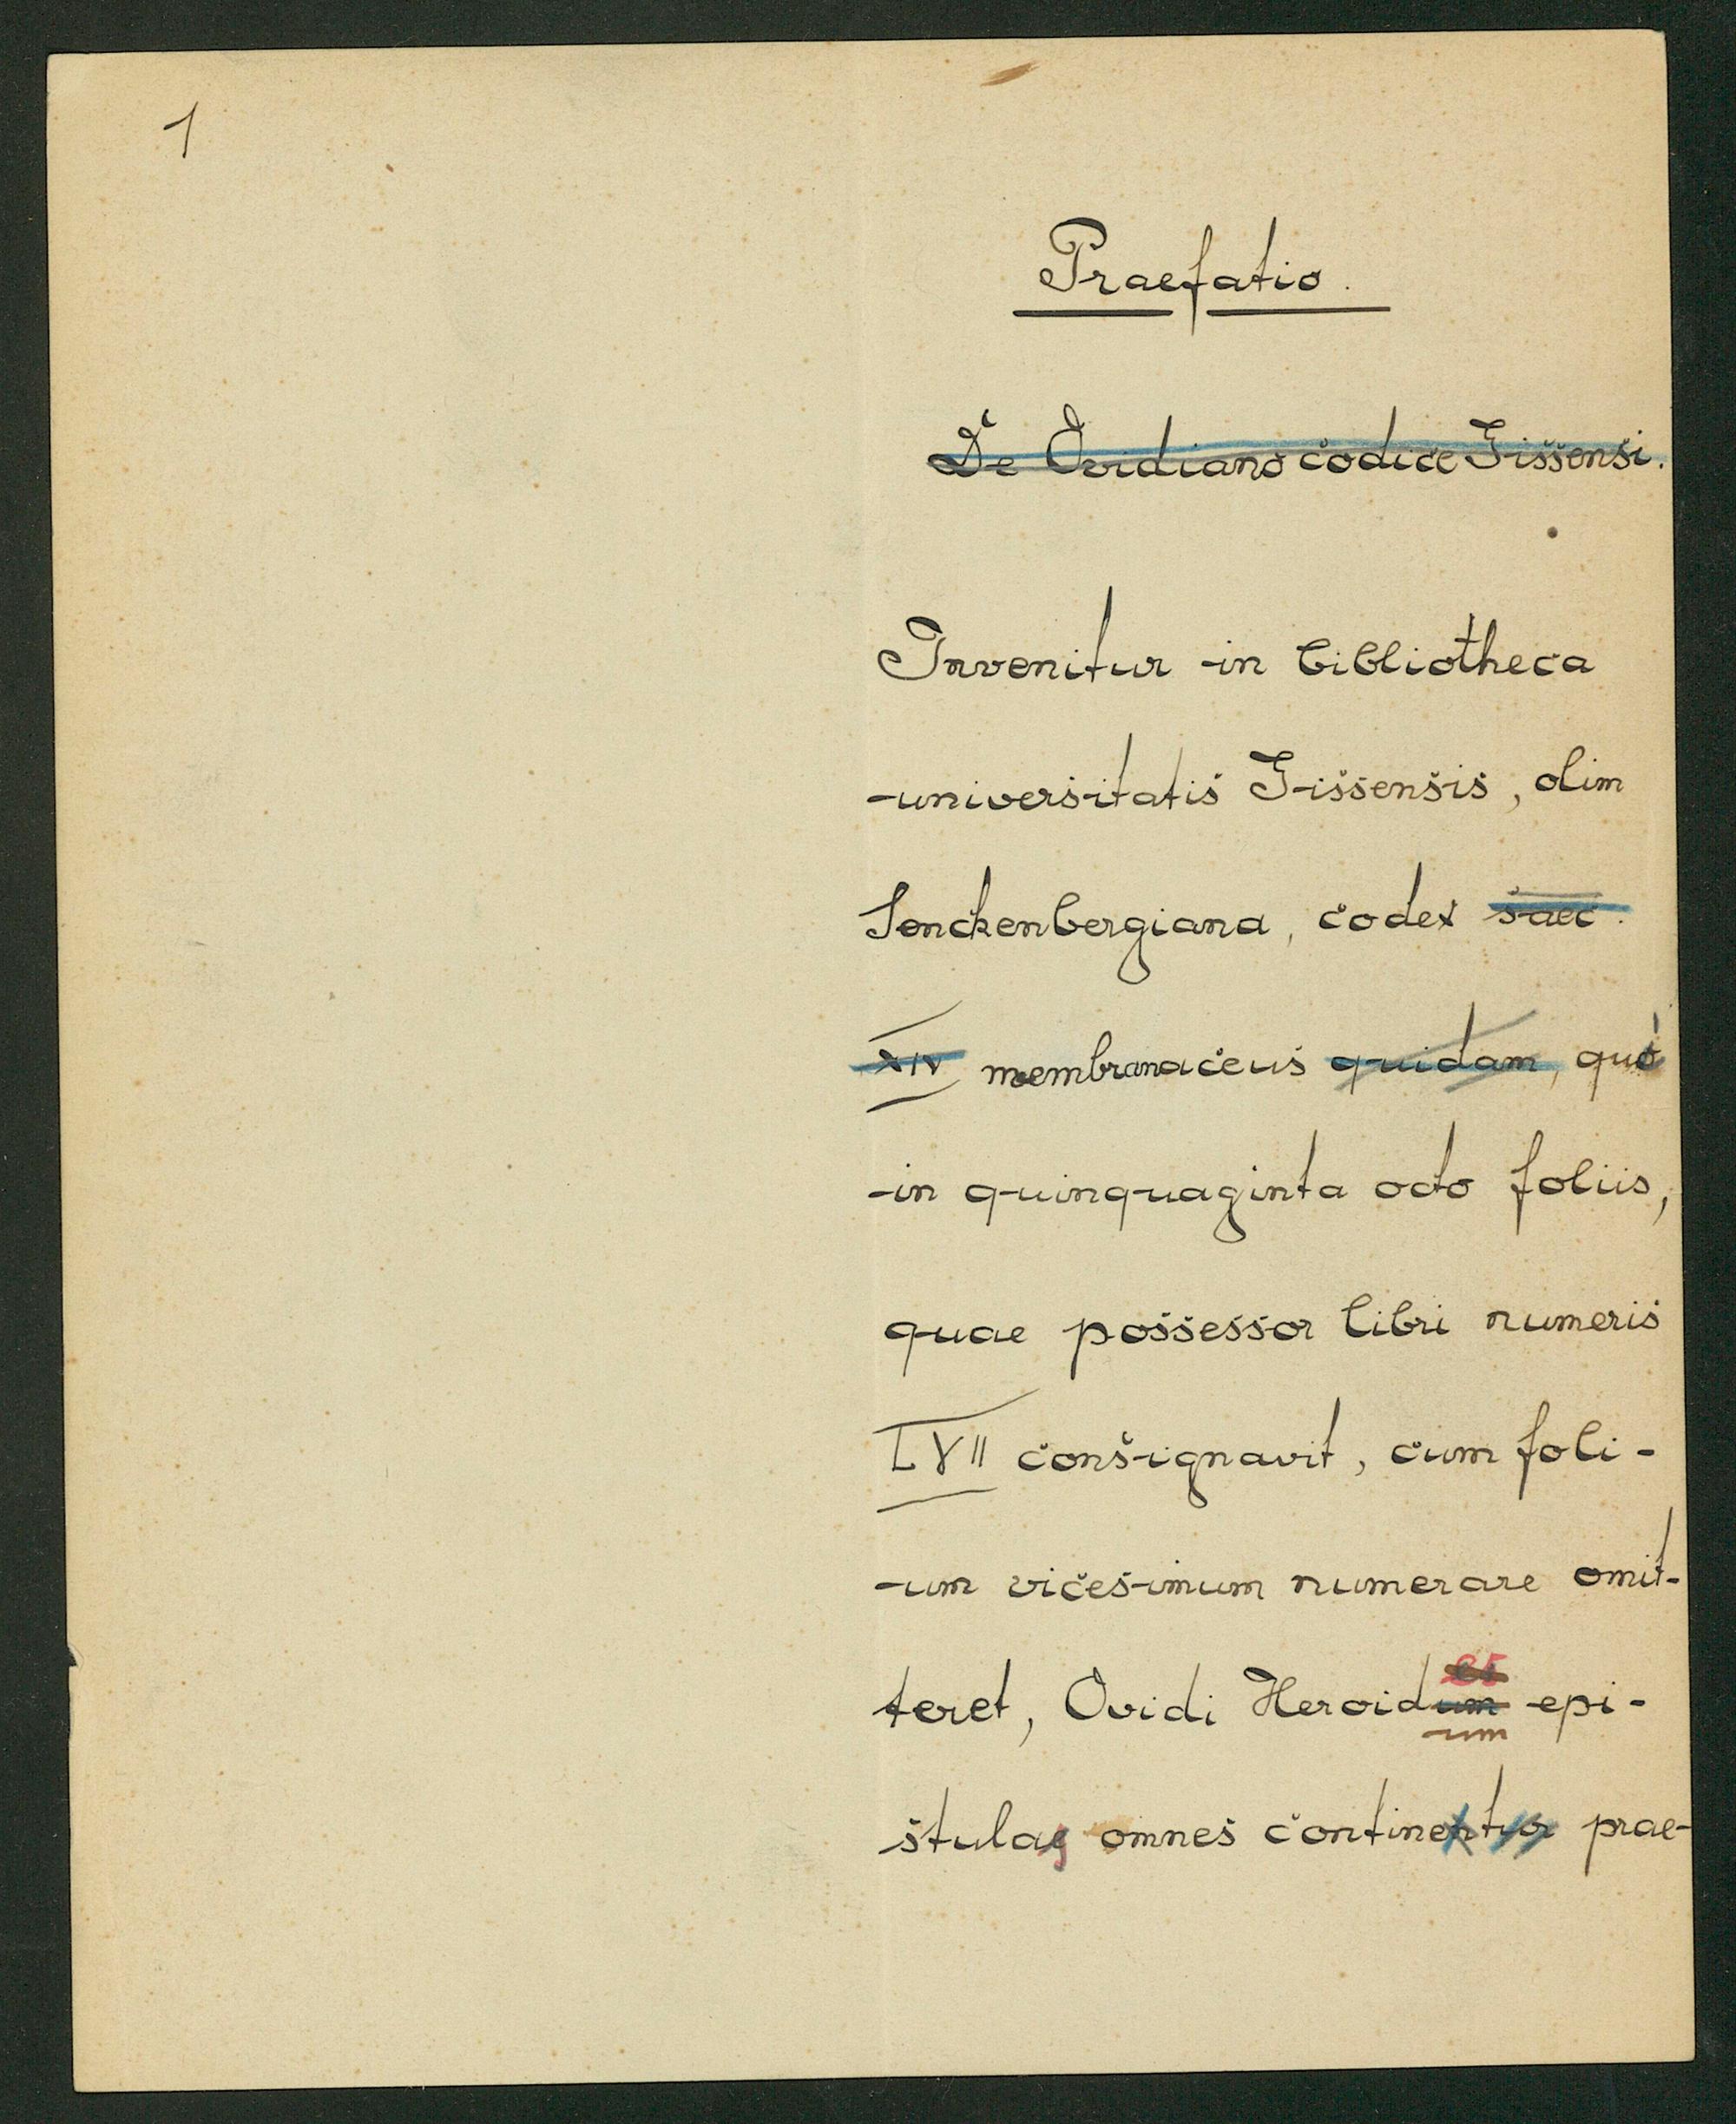 1
Praefatio.
De Ovidiano codice Gissensi.
Invenitur in bibliotheca
universitatis Gissensis, olim
Senckenbergiana, codex saec.
XIV membranaceus quidam, qui
in quinquaginta octo foliis,
quae possessor libri numeris
LVII consignavit, cum foli-
um vicesimum numerare omit-
es
teret, Ovidi Heroidum epi-
um
stulas omnes continentur prae-